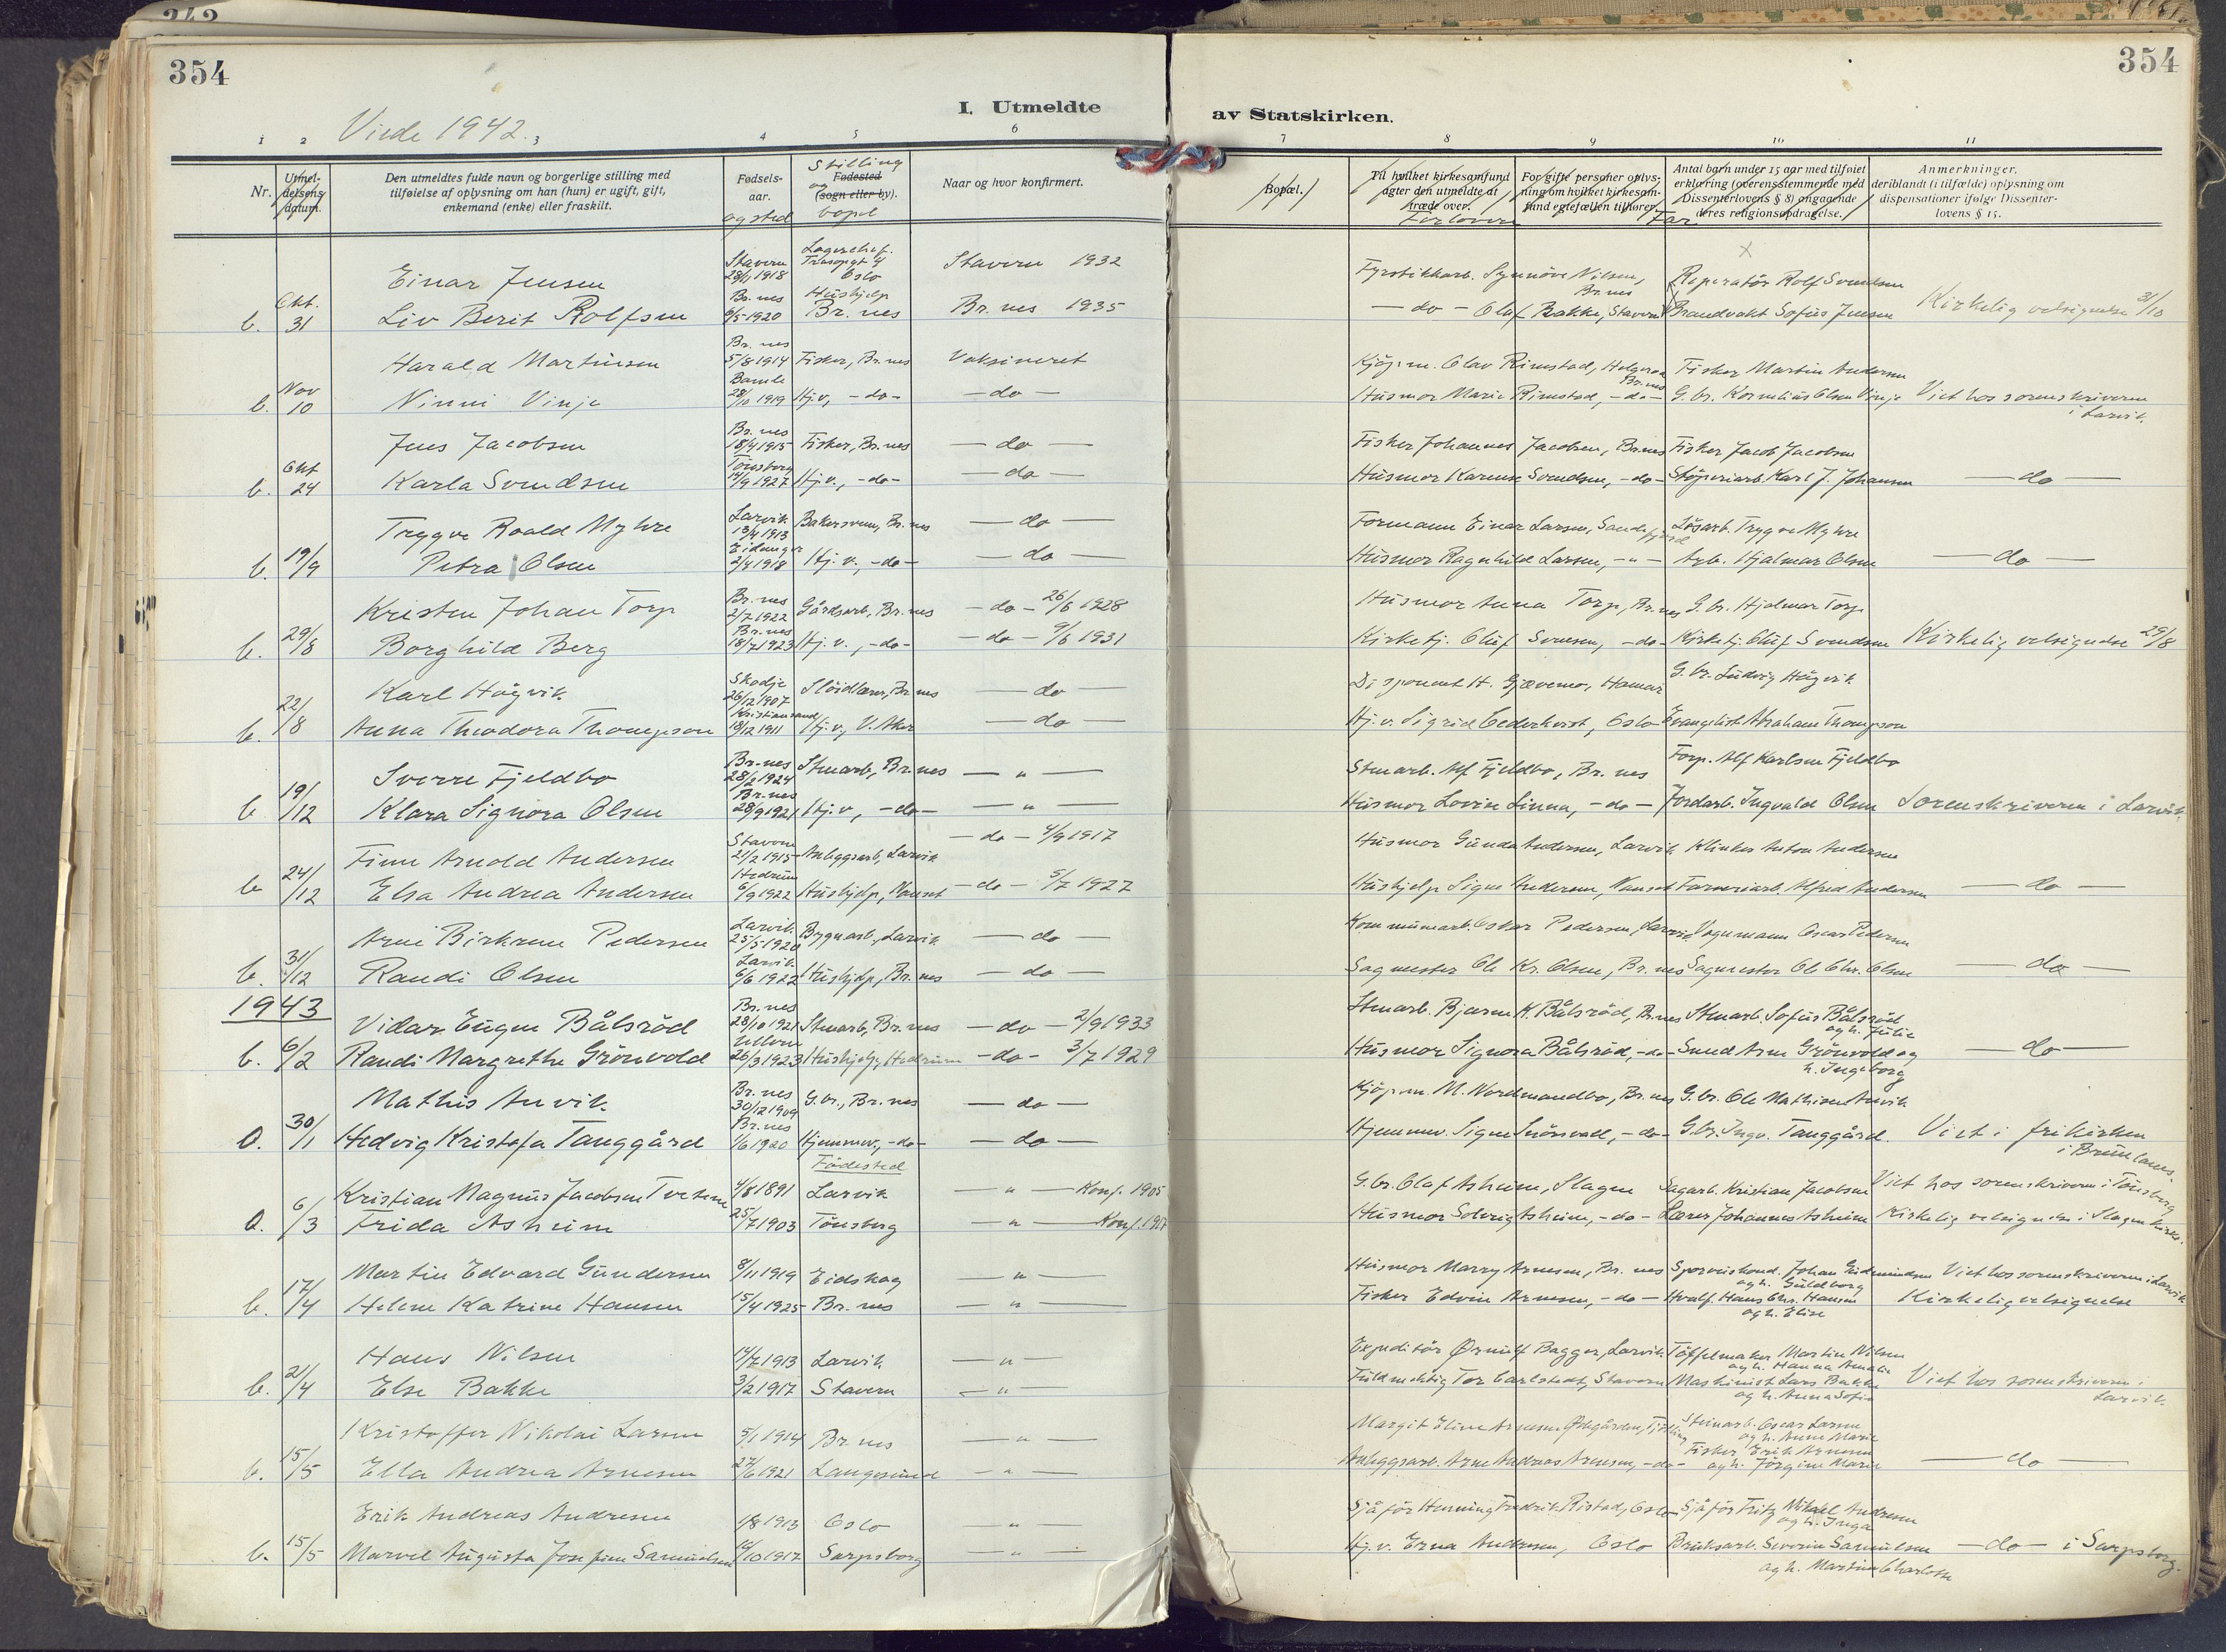 354
354
Viede 1942.
I. Utmeldte
av Statskirken.
1 2 3 4 5 6 7 8 9 10 11
Nr.
Utmel-
delsens
datum.
Den utmeldtes fulde navn og borgerlige stilling med
tilføielse af oplysning om han (hun) er ugift, gift,
enkemand (enke) eller fraskilt.
Fødsels-
aar.
og sted
Stilling
og
Fødested
(sogn eller by).
bopel
Naar og hvor konfirmert.
Bopæl.
Til hvilket kirkesamfund
agter den utmeldte at
træde over.
Forlovere
For gifte personer oplys-
ning om hvilket kirkesam-
fund egtefællen tilhører.
Far
Antal barn under 15 aar med tilføiet
erklæring (overensstemmende med
Dissenterlovens § 8) angaaende
deres religionsopdragelse.
Anmerkninger,
deriblandt (i tilfælde) oplysning om
dispensationer ifølge Dissenter-
lovens § 15.
Einar Jensen Stavern 28/1 1918 Oslo Stavern 1932 Fyrstikkarb. Synnöve Nilsen, Br.nes Reperatör Rolf Svendsen
b. Okt. 31 Liv Berit Rolfsen Br. nes 9/5 1920 Hushjelp Br. nes Br. nes 1935 — do — Olaf Bakke, Stavern Brandvakt Sofus Jensen Kirkelig velsignelse 31/10
Harald Martinsen Br. nes 5/8 1914 Fisker, Br. nes Vaksineret Kjöpm. Olav Rimstad, Helgeroa Br.nes Fisker Martin Andersen
b. Nov 10 Ninni Vinje Bamle 28/10 1919 Hj.v, -do- -do- Husmor Marie Rimstad, -do- G.br. Kornelius Olsen Vinje Viet hos sorenskriveren i Larvik.
Jens Jacobsen Br. nes 18/4 1915 Fisker, Br. nes — do — Fisker Johannes Jacobsen, Br.nes Fisker Jacob Jacobsen
b. Okt 24 Karla Svendsen Tönsberg 14/9 1927 Hj.v., -do- — do — Husmor Karense Svendsen, -do- Stöperiarb. Karl J. Johansen — do —
Trygve Roald Myhre Larvik 13/4 1913 Bakersvenn, Br. nes — do — Formann Einar Larsen, Sandefjord Lösarb. Trygve Myhre
b. 19/9 Petra Olsen Eidanger 2/4 1918 Hj. v., -do- — do — Husmor Ragnhild Larsen, — " — Arb. Hjalmar Olsen — do —
Kristen Johan Torp Br. nes 2/7 1922 Gårdsarb, Br. nes — do — 26/6 1928 Husmor Anna Torp, Br. nes G. br. Hjalmar Torp
b. 29/8 Borghild Berg Br. nes 18/7 1923 Hj. v., -do- — do — 9/6 1931 Kirketj. Oluf Svensen, -do- Kirketj. Oluf Svendsen Kirkelig velsignelse 29/8
Karl Hägvik Skodje 26/12 1907 Slöidlærer, Br. nes — do — Disponent H. Gjævemo, Hamar G. br. Ludvig Hägvik
b. 22/8 Anna Theodora Thompson Kristiansand 18/12 1911 Hj. v., V. Aker — do — Hj. v. Sigrid Cederkvist, Oslo Evangelist Abraham Thompson
Sverre Fjeldbo Br. nes 28/2 1924 Stenarb, Br. nes — " — Stenarb. Alf Fjeldbo, Br. nes Forp. Alf Karlsen Fjeldbo
b 19/12 Klara Signora Olsen Br. nes 28/9 1921 Hj. v, -do- — " — Husmor Lovise Linna, -do- Jordarb. Ingvald Olsen Sorenskriveren i Larvik.
Finn Arnold Andersen Stavern 21/2 1915 Anleggsarb, Larvik — do — 4/9 1917 Husmor Gunda Andersen, Larvik Klinker Anton Andersen
b 24/12 Elsa Andrea Andersen Hedrum 6/9 1922 Hushjelp, Nanset — do — 5/7 1927 Hushjelp Signe Andersen, Nanset Farveriarb. Alfred Andersen — do —
Arne Birkrem Pedersen Larvik 25/5 1920 Bygnarb, Larvik — do — Kommunearb. Oskar Pedersen, Larvik Vognmann Oscar Pedersen
b. 31/12 Randi Olsen Larvik 6/6 1922 Hushjelp, Br. nes — do — Sagmester Ole Kr. Olsen, Br. nes Sagmester Ole Chr. Olsen — do —
1943
Vidar Eugen Bålsröd Br. nes 28/10 1921 Stenarb, Br. nes — do — 2/9 1933 Stenarb. Bjarne K. Bålsröd, Br.nes Stenarb. Sofus Bålsröd og h. Julie
b. 6/2 Randi Margrethe Grönvold 26/3 1923 Hushjelp, Hedrum — do — 3/7 1929 Husmor Signora Bålsröd, -do- Smed Arne Grönvold og h. Ingeborg — do —
Mathis Anvik Br. nes 30/12 1909 G. br., Br. nes — do — Kjöpm. M. Nordmandbo, Br. nes G. br. Ole Mathisen Anvik
O. 30/1 Hedvig Kristofa Tanggård Br. nes 1/6 1920 Hjemmev., -do- — do — Hjemmev. Signe Snörsvall, -do- G.br. Ingv. Tanggård. Viet i frikirken i Brunlanes.
Födested
Kristian Magnus Jacobsen Tvetene 4/8 1891 Larvik — " — Konf. 1905 G. br. Olaf Asheim, Slagen Sagarb. Kristian Jacobsen Viet hos sorenskriveren i Tönsberg
O. 6/3 Frida Asheim 25/7 1903 Tönsberg — " — Konf. 1917 Husmor Solveig Asheim, -do- Lærer Johannes Asheim Kirkelig velsignelse i Slagen kirke.
Martin Edvard Gundersen 8/11 1919 Eidskog — " — Husmor Marry Arnesen, Br. nes Sporveiskond. Johan Gudmundsen og h. Guldborg Viet hos sorenskriveren i Larvik
b. 17/4 Helene Katrine Hansen 15/4 1925 Br. nes — " — Fisker Edvin Arnesen, -do- Hvalf. Hans Chr. Hansen og h. Elise Kirkelig velsignelse
Hans Nilsen 14/7 1913 Larvik — " — Expeditör Ørnulf Bagger, Larvik Töffelmaker Martin Nilsen og h. Hanna Amalie
b. 21/4 Else Bakke 3/2 1917 Stavern — " — Fuldmektig Tor Carlstedt, Stavern Maskinist Lars Bakke og h. Anna Sofie Viet hos sorenskriveren i Larvik.
Kristoffer Nikolai Larsen 5/1 1914 Br. nes — " — Margit Eline Arnesen, Tjölling Stenarb. Oscar Larsen og h. Anne Marie
b. 15/5 Ella Andrea Arnesen 27/6 1921 Langesund — " — Anleggsarb. Arne Andreas Arnesen, -do- Fisker Erik Arnesen og h. Jörgine Marie — do —
Erik Andreas Andresen 1/8 1913 Oslo — " — Sjåför Henning Fredrik Ristad, Oslo Sjåför Fritz Mikael Andresen og h. Inga
b. 15/5 Marvel Augusta Josefine Samuelsen 16/10 1917 Sarpsborg — " — Hj. v. Erna Andresen, Oslo Bruksarb. Severin Samuelsen og h. Martine Charlotte — do — i Sarpsborg.